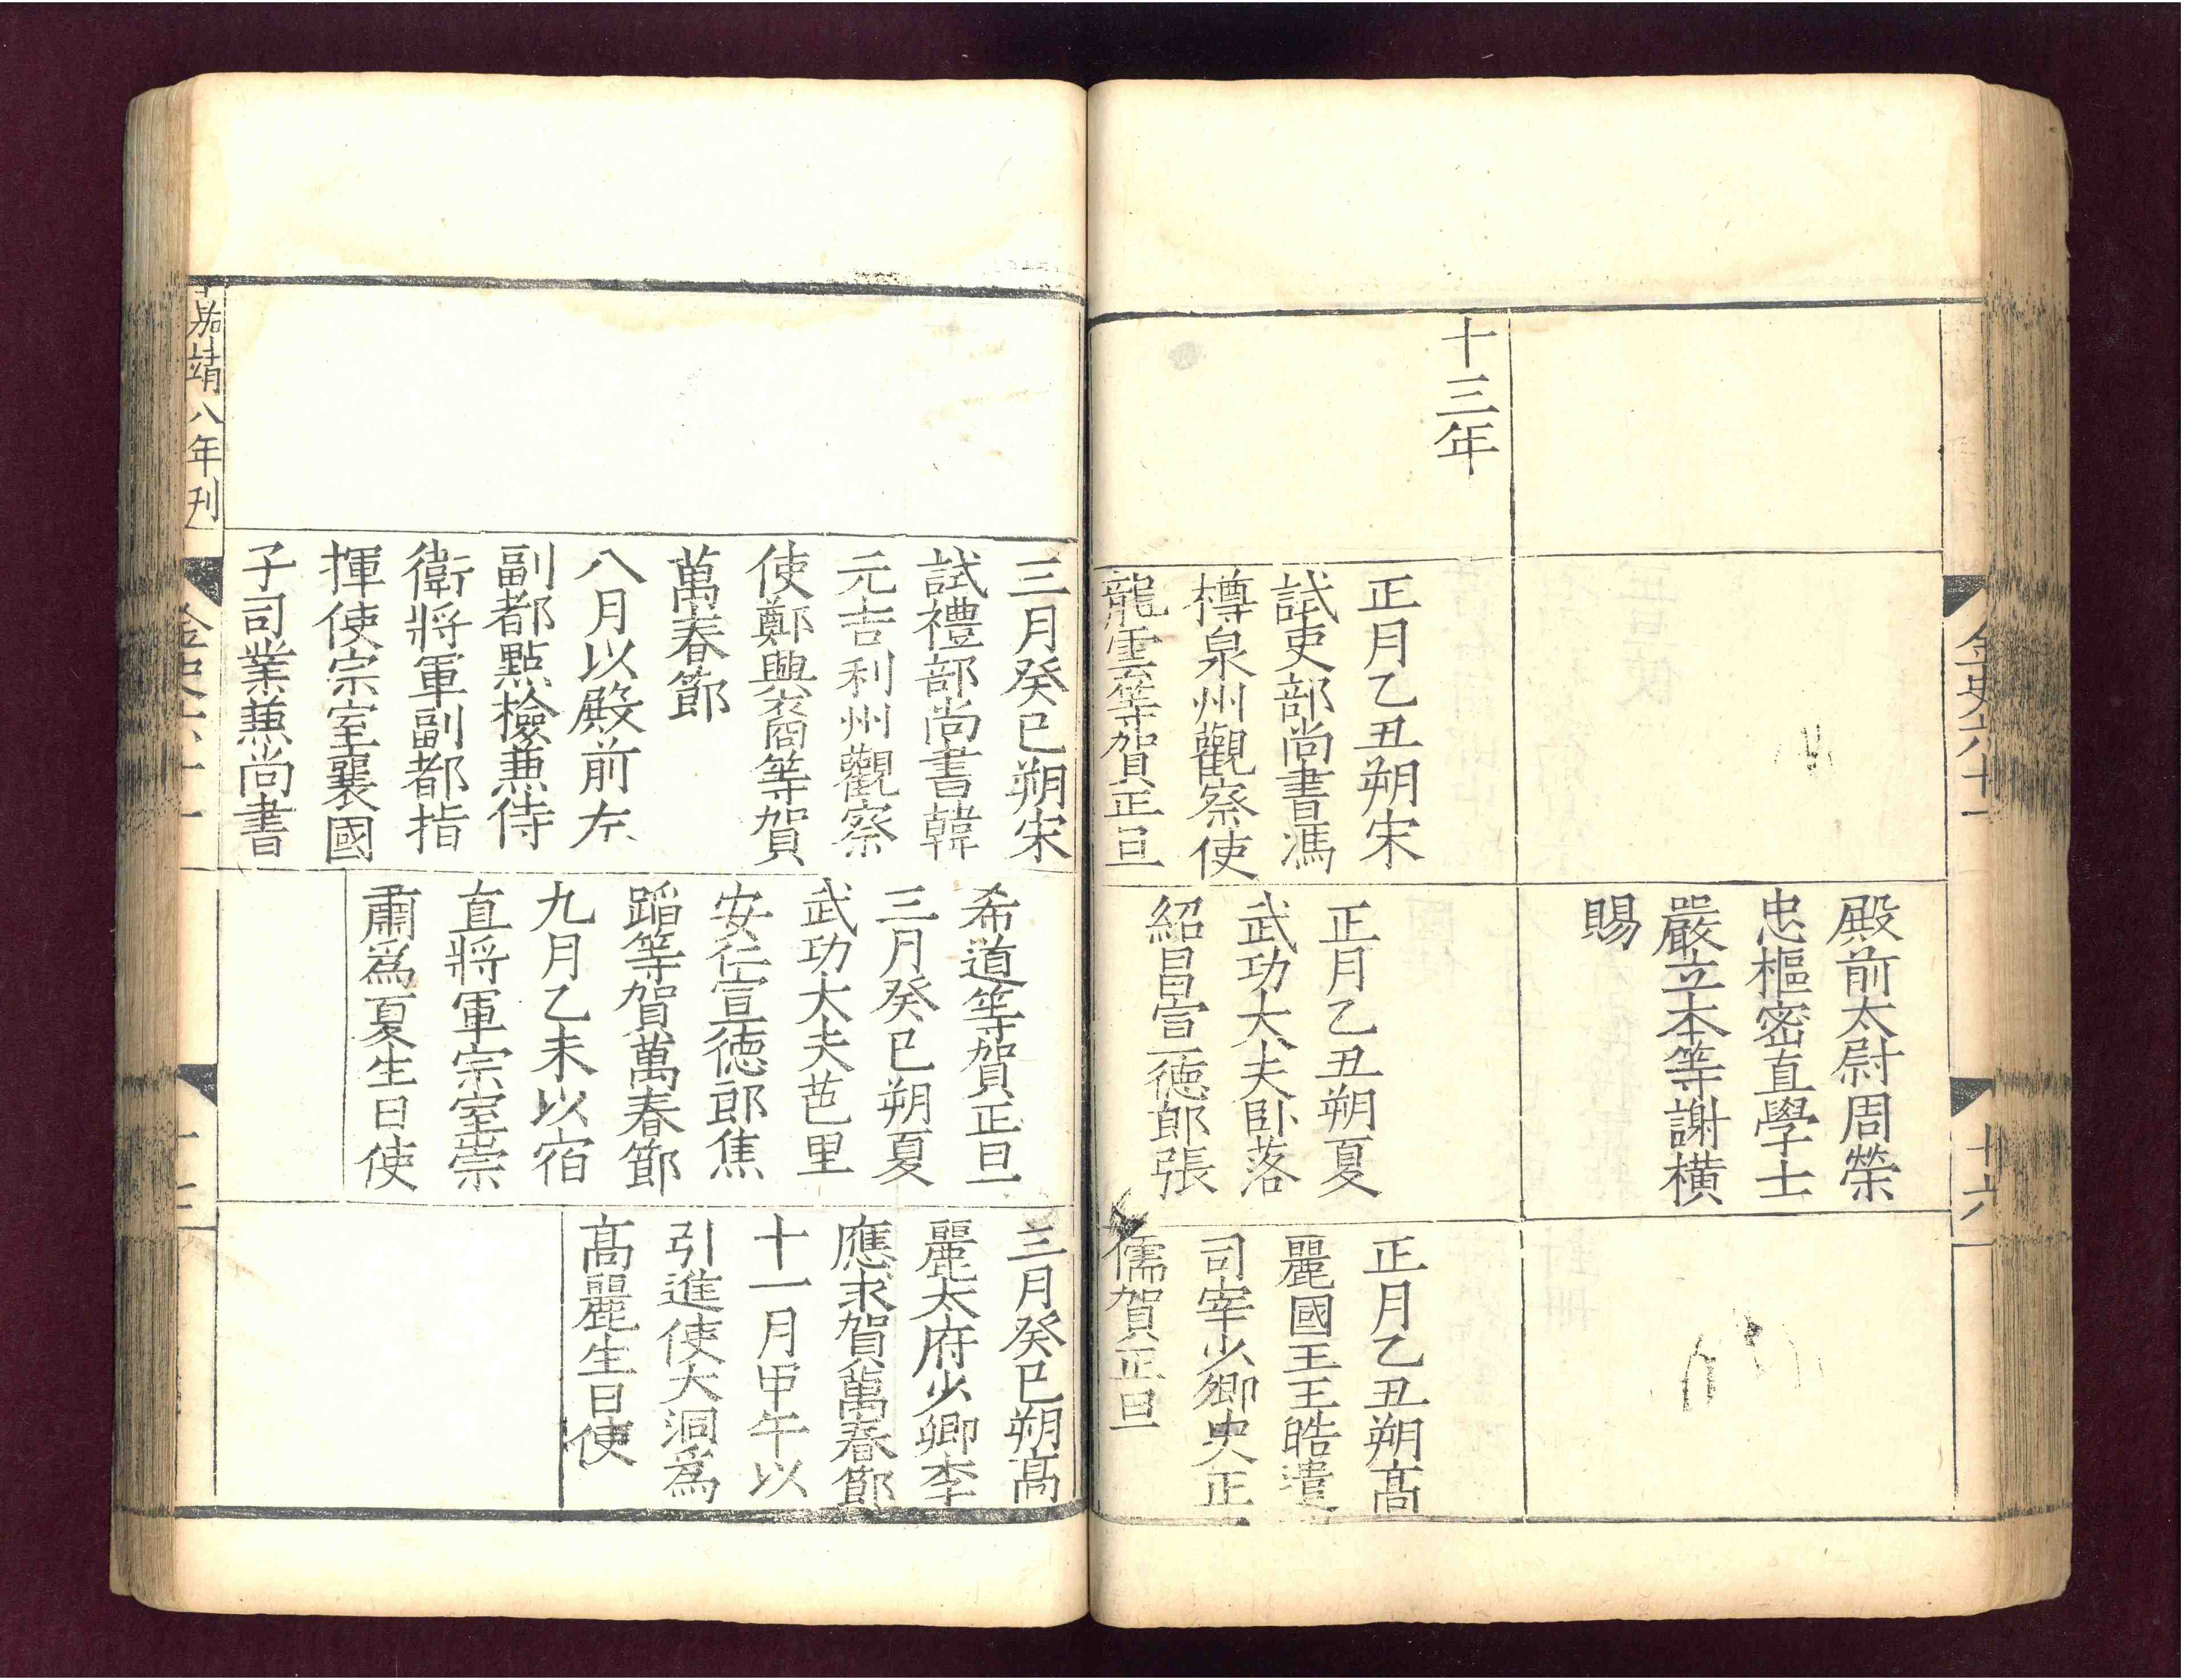 金史六十一
十六
殿前太尉周榮
忠樞密直學士
嚴立本等謝橫
賜
十三年
正月乙丑朔宋
試吏部尚書馮
樽泉州觀察使
龍雲等賀正旦
正月乙丑朔夏
武功大夫卧落
紹昌宣德郎張
正月乙丑朔高
麗國王王皓遣
司宰少卿史正
儒賀正旦
三月癸巳朔宋
試禮部尚書韓
元吉利州觀察
使鄭興裔等賀
萬春節
八月以殿前左
副都點檢兼侍
衛將軍副都指
揮使宗室襄國
子司業兼尚書
希道等賀正旦
三月癸巳朔夏
武功大夫芭里
安仁宣德郎焦
蹈等賀萬春節
九月乙未以宿
直將軍宗室崇
肅爲夏生日使
三月癸巳朔高
麗太府少卿李
應求賀萬春節
十一月甲午以
引進使大洞爲
高麗生日使
嘉靖八年刊